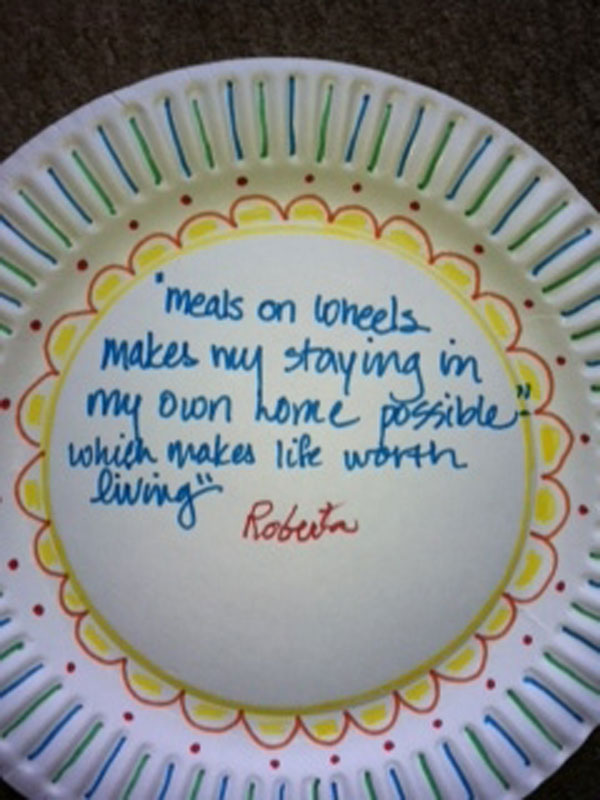 "meals on wheels
makes my staying in
my own home possible"
which makes life worth
living"
Roberta